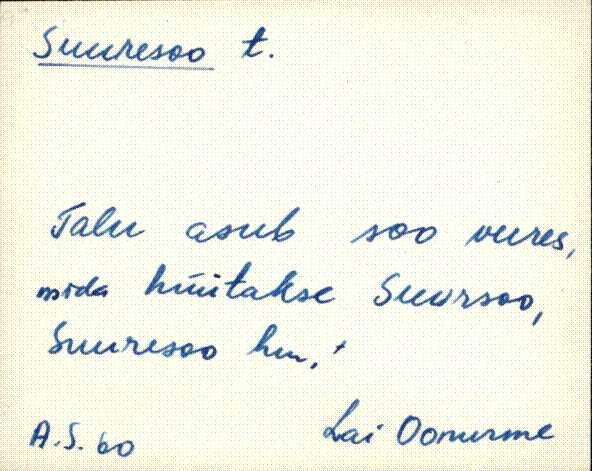 Suuresoo t.
Talu asub soo veeres,
mida hüitakse Suursoo,
Suuresoo hm.
A.S. 60
Lai Oonurme